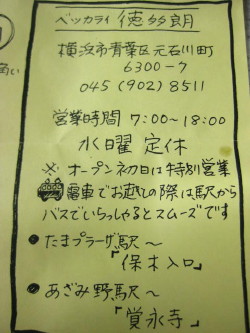 ベッカライ 徳多朗
横浜市青葉区元石川町
6300-7
045(902)8511
営業時間 7:00～18:00
水曜 定休
※ オープン初日は特別営業
電車でお越しの際は駅から
バスでいらっしゃるとスムーズです
●たまプラーザ駅～
「保木入口」
●あざみ野駅～
「覚永寺」